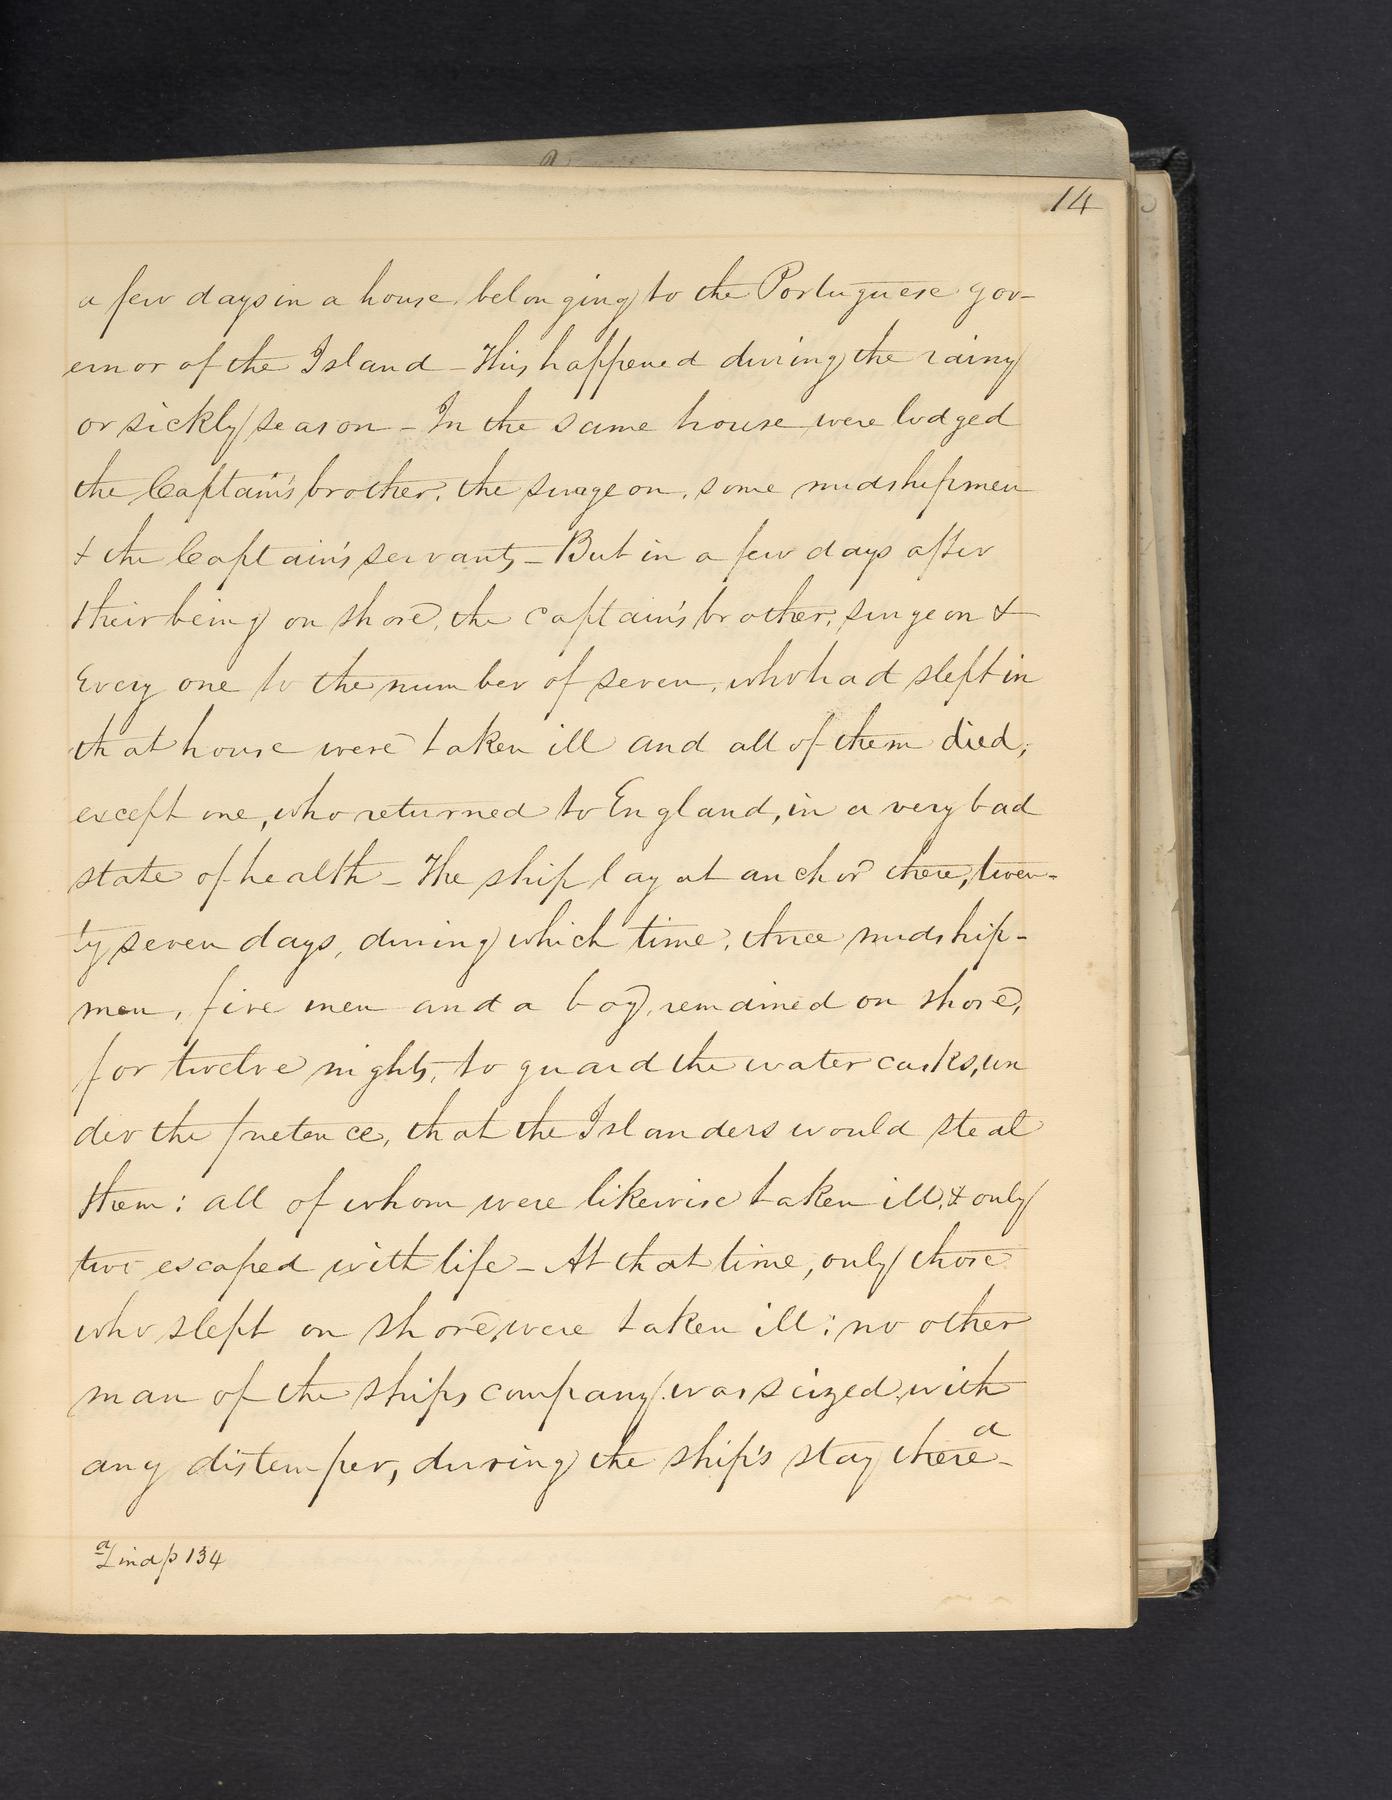 14
a few days in a house, belonging to the Portuguese gov-
ernor of the Island – This happened during the rainy
or sickly season – In the same house were lodged
the Captain's brother, the surgeon, some midshipmen
& the Captain's servants – But in a few days after
their being on shore, the captain's brother, surgeon &
Every one to the number of seven, who had slept in
that house were taken ill and all of them died;
except one, who returned to England, in a very bad
state of health – The ship lay at anchor there, twen-
ty seven days, during which time, three midship-
men, five men and a boy, remained on shore,
for twelve nights, to guard the water casks, un
der the pretence, that the Islanders would steal
them: all of whom were likewise taken ill, & only
two escaped with life – At that time, only those
who slept on shore, were taken ill; no other
man of the ships company, was seized, with
any distemper, during the ship's stay there – a
a Lind p 134